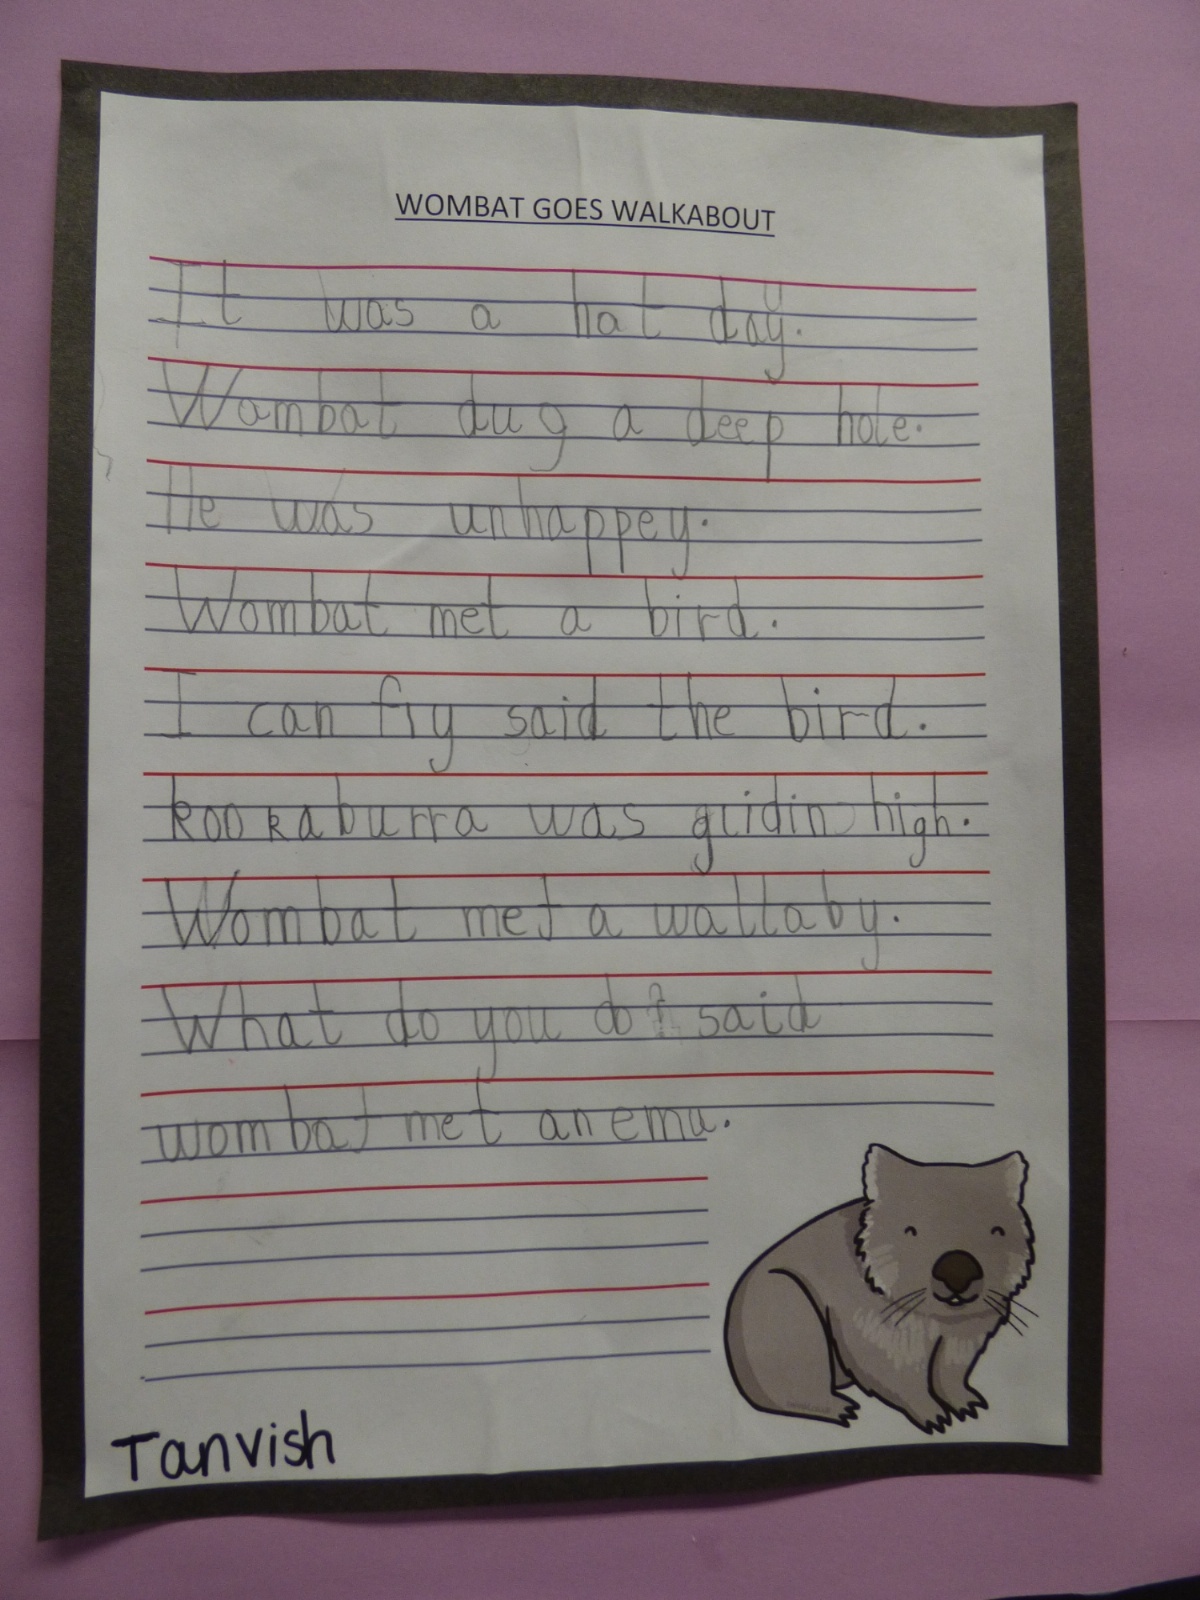 WOMBAT GOES WALKABOUT
It was a hat day.
Wambat dug a deep hole.
He was unhappey.
Wombat met a bird.
I can fly said the bird.
kookaburra was glidin high.
Wombat met a wallaby.
What do you do? said
wombat met an emu.
Tanvish